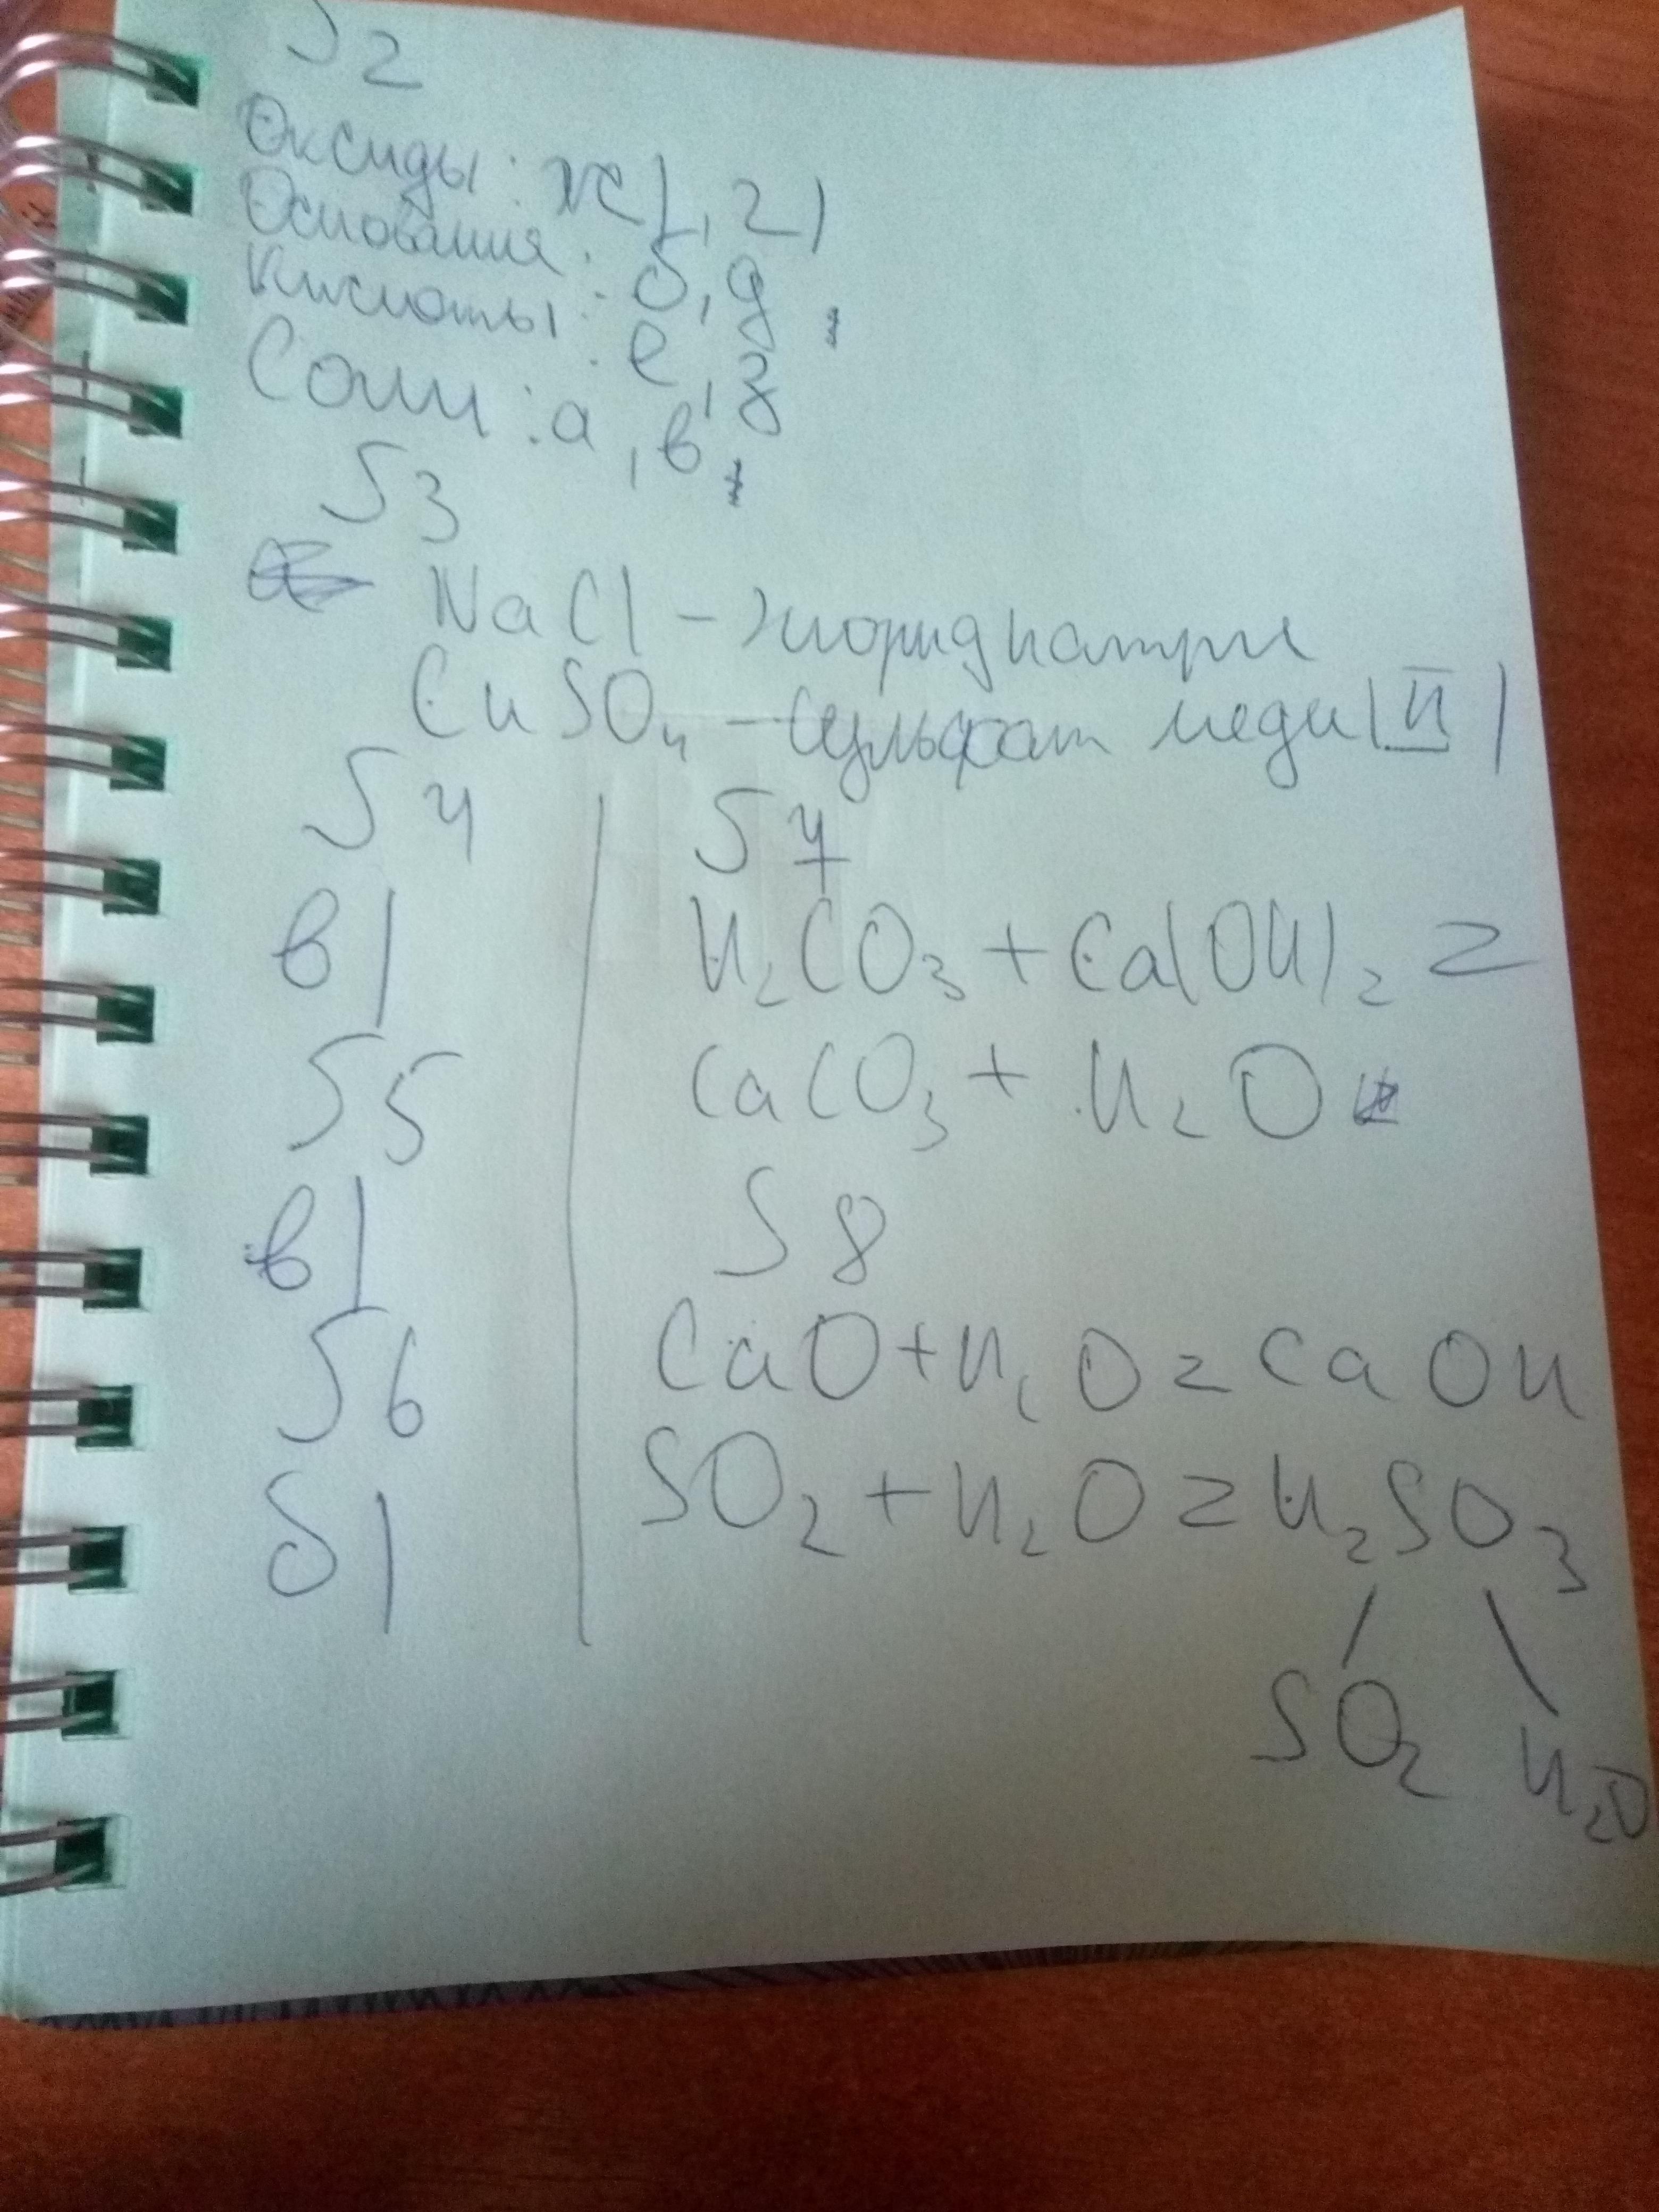 S2
Оксиды: ж), г)
Основания: б, д
Кислоты: е, з
Соли: а, в
S3
NaCl – хлорид натрия
CuSO4 – Сульфат меди (II)
S4
в)
S5
в)
S6
б)
S7
H2CO3 + Ca(OH)2 =
CaCO3 + H2O
S8
CaO + H2O = CaOH
SO2 + H2O = H2SO3
SO2 H2O